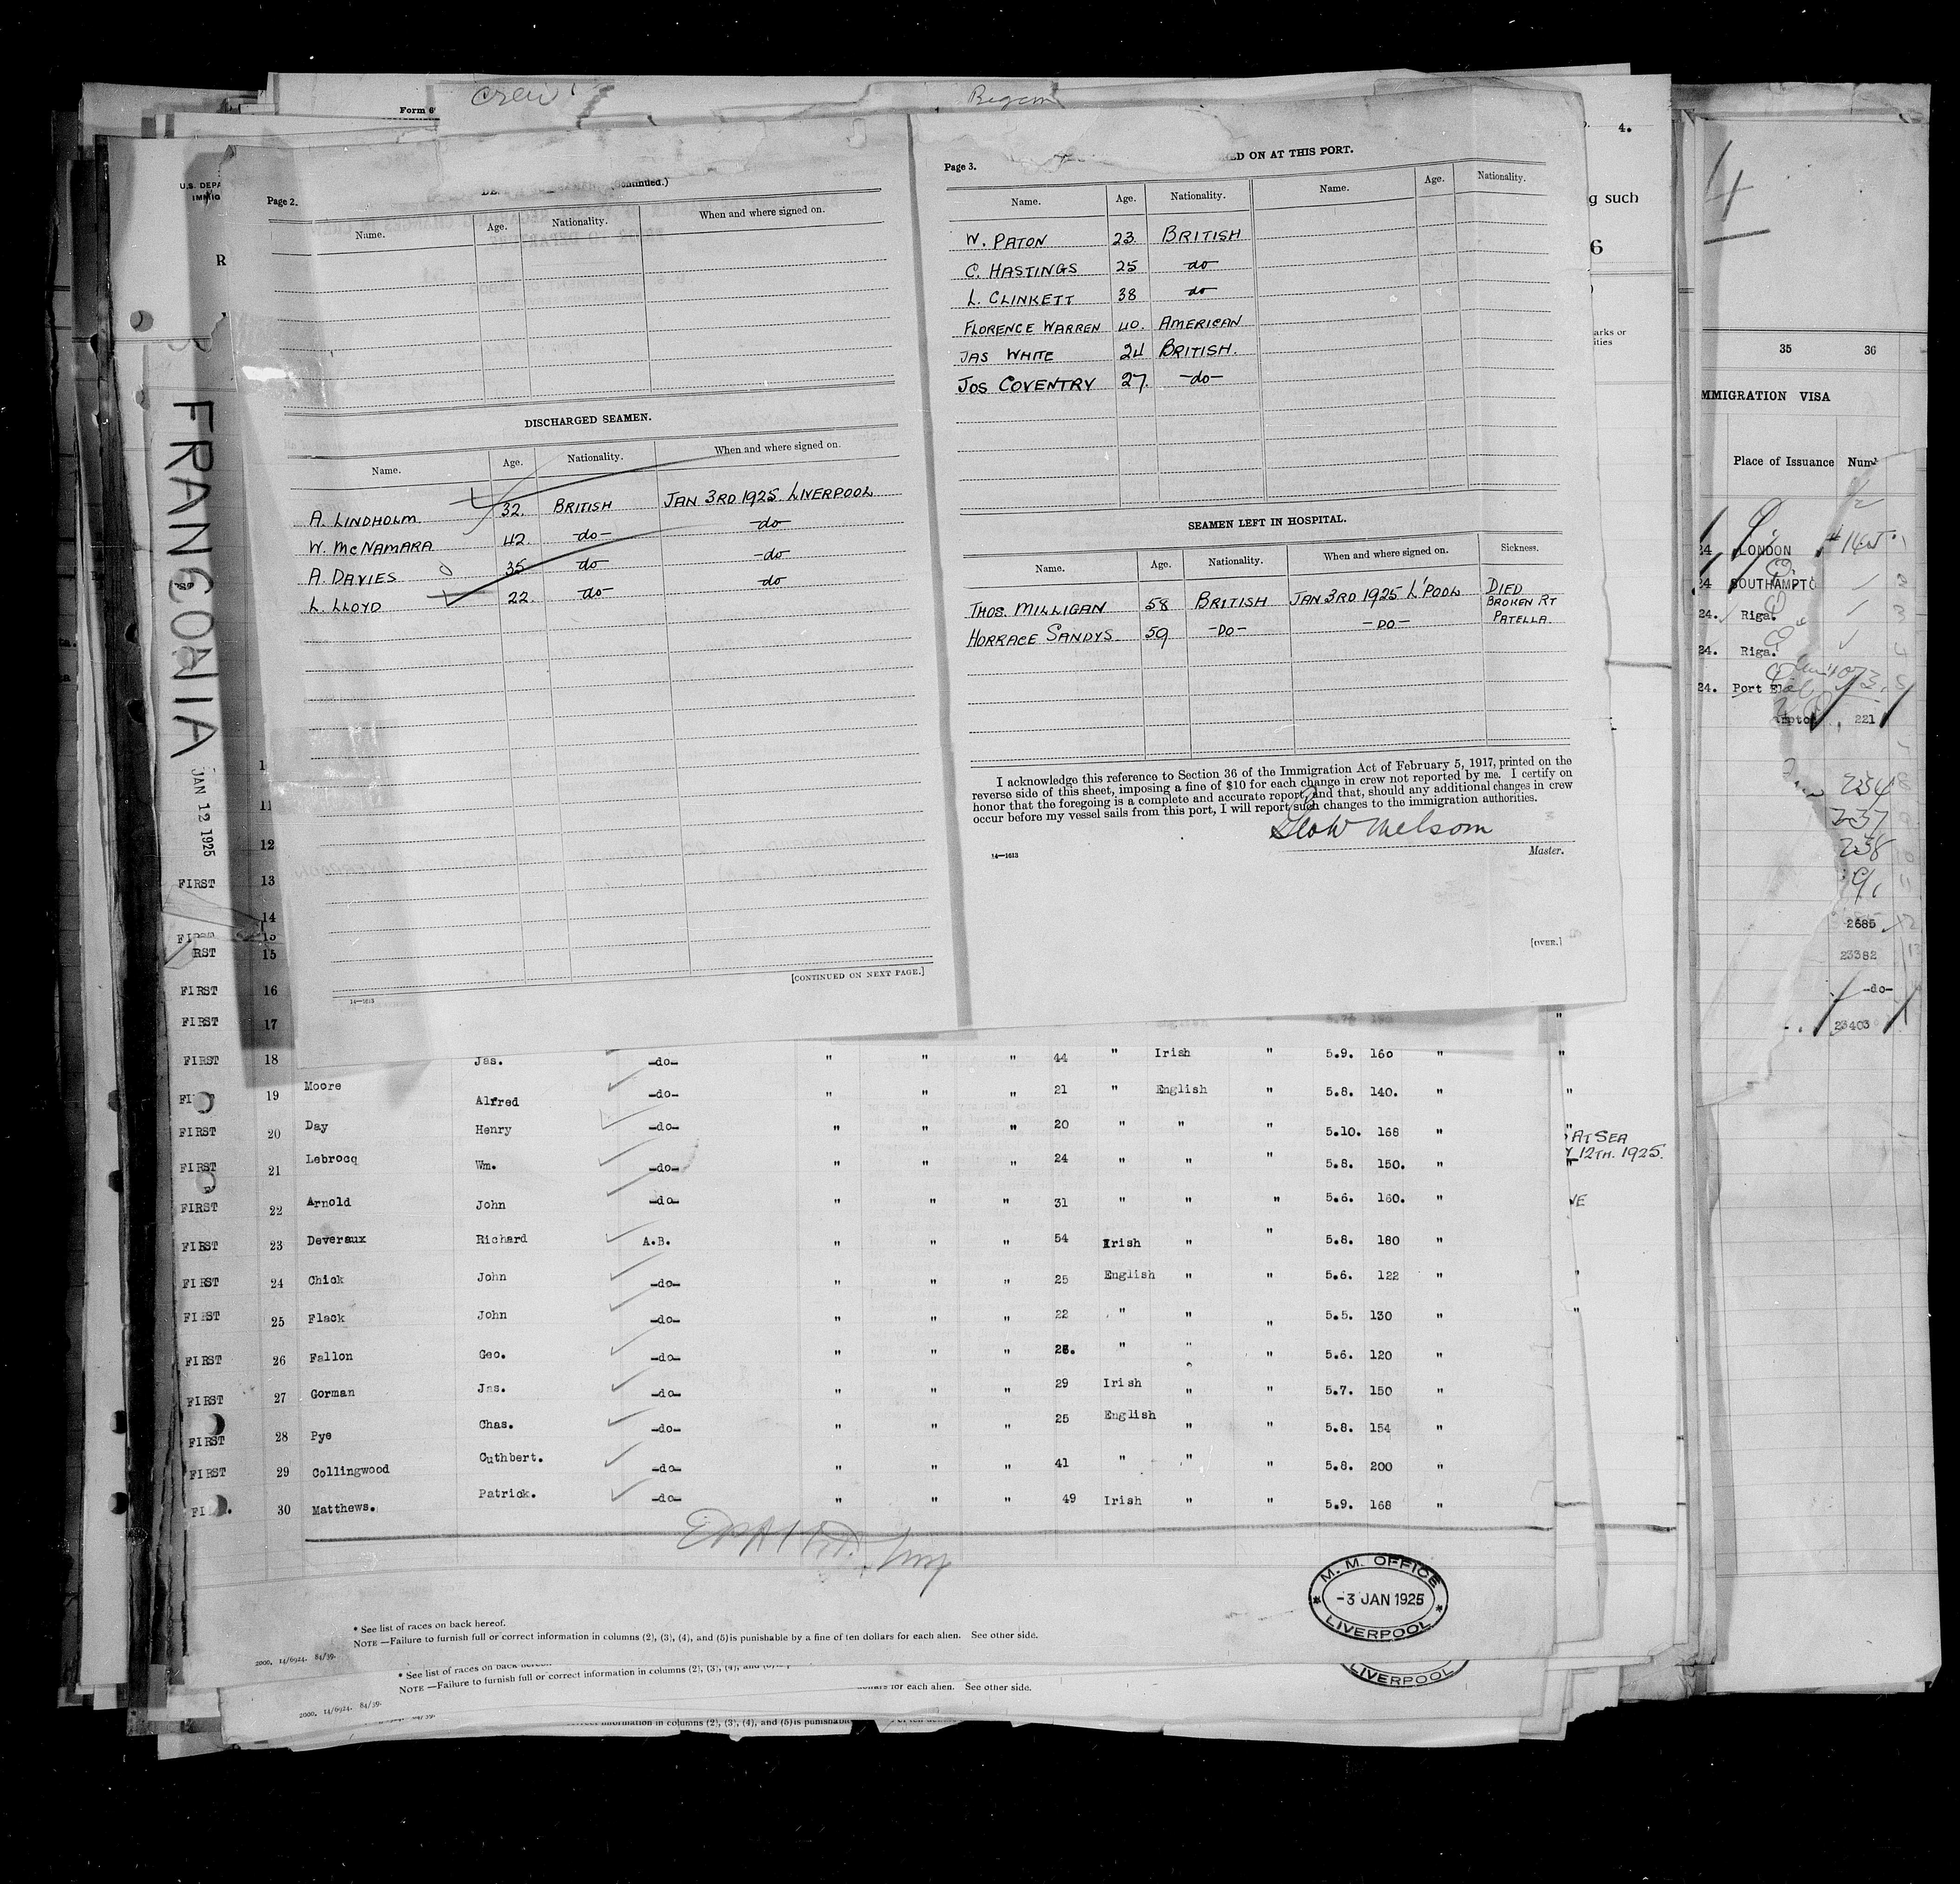 Crew
Form 6
Began
4.
U.S. DEPA
IMMIG
R
Page 2.
(Continued.)
Name. Age. Nationality. When and where signed on.
DISCHARGED SEAMEN.
Name. Age. Nationality. When and where signed on.
A. LINDHOLM. 32. BRITISH JAN 3RD 1925. LIVERPOOL
W. McNAMARA 42. -do- -do-
A. DAVIES 35 do -do-
L. LLOYD 22. -do- do
[CONTINUED ON NEXT PAGE.]
14—1613
Page 3.
ED ON AT THIS PORT.
Name. Age. Nationality. Name. Age. Nationality.
W. PATON 23. BRITISH
C. HASTINGS 25 do
L. CLINKETT 38 do
FLORENCE WARREN 40. AMERICAN
JAS WHITE 24 BRITISH.
JOS COVENTRY 27. -do-
SEAMEN LEFT IN HOSPITAL.
Name. Age. Nationality. When and where signed on. Sickness.
THOS. MILLIGAN 58 BRITISH JAN 3RD 1925 L'POOL DIED
HORRACE SANDYS 59 -DO- -DO- BROKEN RT
PATELLA.
I acknowledge this reference to Section 36 of the Immigration Act of February 5, 1917, printed on the
reverse side of this sheet, imposing a fine of $10 for each change in crew not reported by me. I certify on
honor that the foregoing is a complete and accurate report, and that, should any additional changes in crew
occur before my vessel sails from this port, I will report such changes to the immigration authorities.
Melsom
Master.
14—1613
[OVER.]
g such
6
arks or
ities
FRANCONIA
JAN 12 1925
11
12
FIRST 13
14
15
RST 15
FIRST 16
FIRST 17
FIRST 18 Jas. -do- " " " 44 " Irish " 5.9. 160 " "
19 Moore Alfred -do- " " " 21 " English " 5.8. 140. " "
FIRST 20 Day Henry -do- " " " 20 " " " 5.10. 168 " "
FIRST 21 Lebrocq Wm. -do- " " " 24 " " " 5.8. 150. " "
FIRST 22 Arnold John -do- " " " 31 " " " 5.6. 160. "
FIRST 23 Deveraux Richard A.B. " " " 54 Irish " " 5.8. 180 "
FIRST 24 Chick John -do- " " " 25 English " " 5.6. 122 " "
FIRST 25 Flack John -do- " " " 22 " " 5.5. 130 " "
FIRST 26 Fallon Geo. -do- " " " " " " 5.6. 120 "
FIRST 27 Gorman Jas. -do- " " " 29 Irish " " 5.7. 150 "
FIRST 28 Pye Chas. -do- " " " 25 English " " 5.8. 154 "
FIRST 29 Collingwood Cuthbert. -do- " " " 41 " " " 5.8. 200 "
30 Matthews. Patrick. -do- " " " 49 Irish " " 5.9. 168 "
AT SEA
12TH. 1925.
M. M. OFFICE
-3 JAN 1925
LIVERPOOL
* See list of races on back hereof.
NOTE —Failure to furnish full or correct information in columns (2), (3), (4), and (5) is punishable by a fine of ten dollars for each alien. See other side.
2000. 14/6924. 84/39.
* See list of races on back hereof.
NOTE —Failure to furnish full or correct information in columns (2), (3), (4), and (5) is p
dollars for each alien. See other side.
LIVERPOOL
2000. 14/6924. 84/39.
rrect information in columns (2), (3), (4), and (5) is punishable
4
35 36
MMIGRATION VISA
Place of Issuance Num
24 LONDON 1
24 SOUTHAMPTO 2
24. Riga. 3
24. Riga. 4
24. Port El 5
mpto 221
234 8
237 9
238 10
11
2685 12
23382 13
-do-
23403